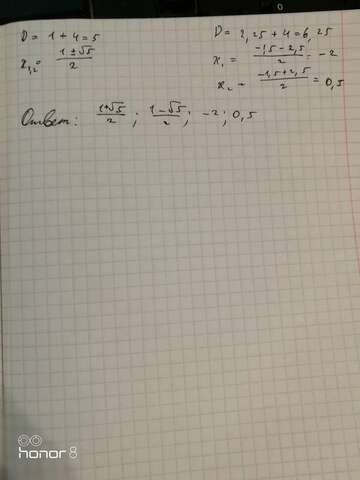 D = 1 + 4 = 5
x₁,₂ = (1 ± √5)/2
D = 2,25 + 4 = 6,25
x₁ = (-1,5 - 2,5)/2 = -2
x₂ = (-1,5 + 2,5)/2 = 0,5
Ответ: (1+√5)/2 ; (1-√5)/2 ; -2 ; 0,5
honor 8